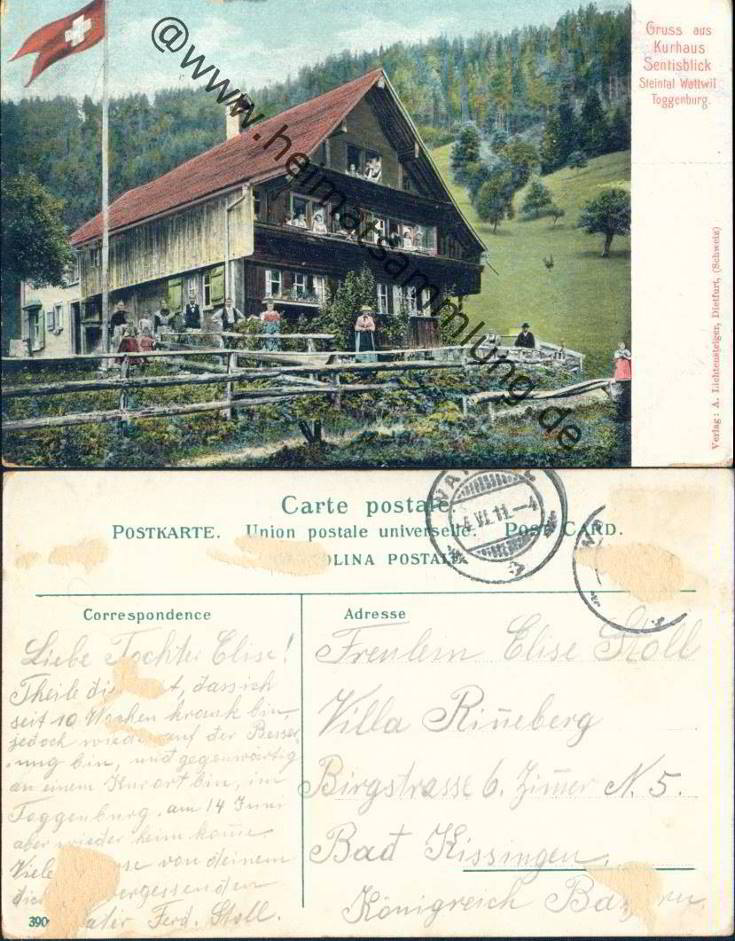 Gruss aus
Kurhaus
Sentisblick
Steintal Wattwil
Toggenburg.
@www.heimatsammlung.de
Verlag: A. Lichtensteiger, Dietfurt, (Schweiz)
Carte postale
POSTKARTE. Union postale universelle. POST CARD.
OLINA POSTALE
WAT
VI.11.–4
Correspondence
Adresse
Liebe Tochter Elise!
Theile di t, dass ich
seit 10 Wochen krank bin,
jedoch wieder auf der Besser
ung bin, und gegenwärtig
an einem Kurort bin, im
Toggenburg. am 14 Juni
aber wieder heim kom̄e
Viele se von deinem
dich vergessenden
ater Ferd. Stoll.
390
Freulein Elise Stoll
Villa Rin̄eberg
Birgstrasse 6. Zim̄er N. 5.
Bad Kissingen.
Königreich Ba rn